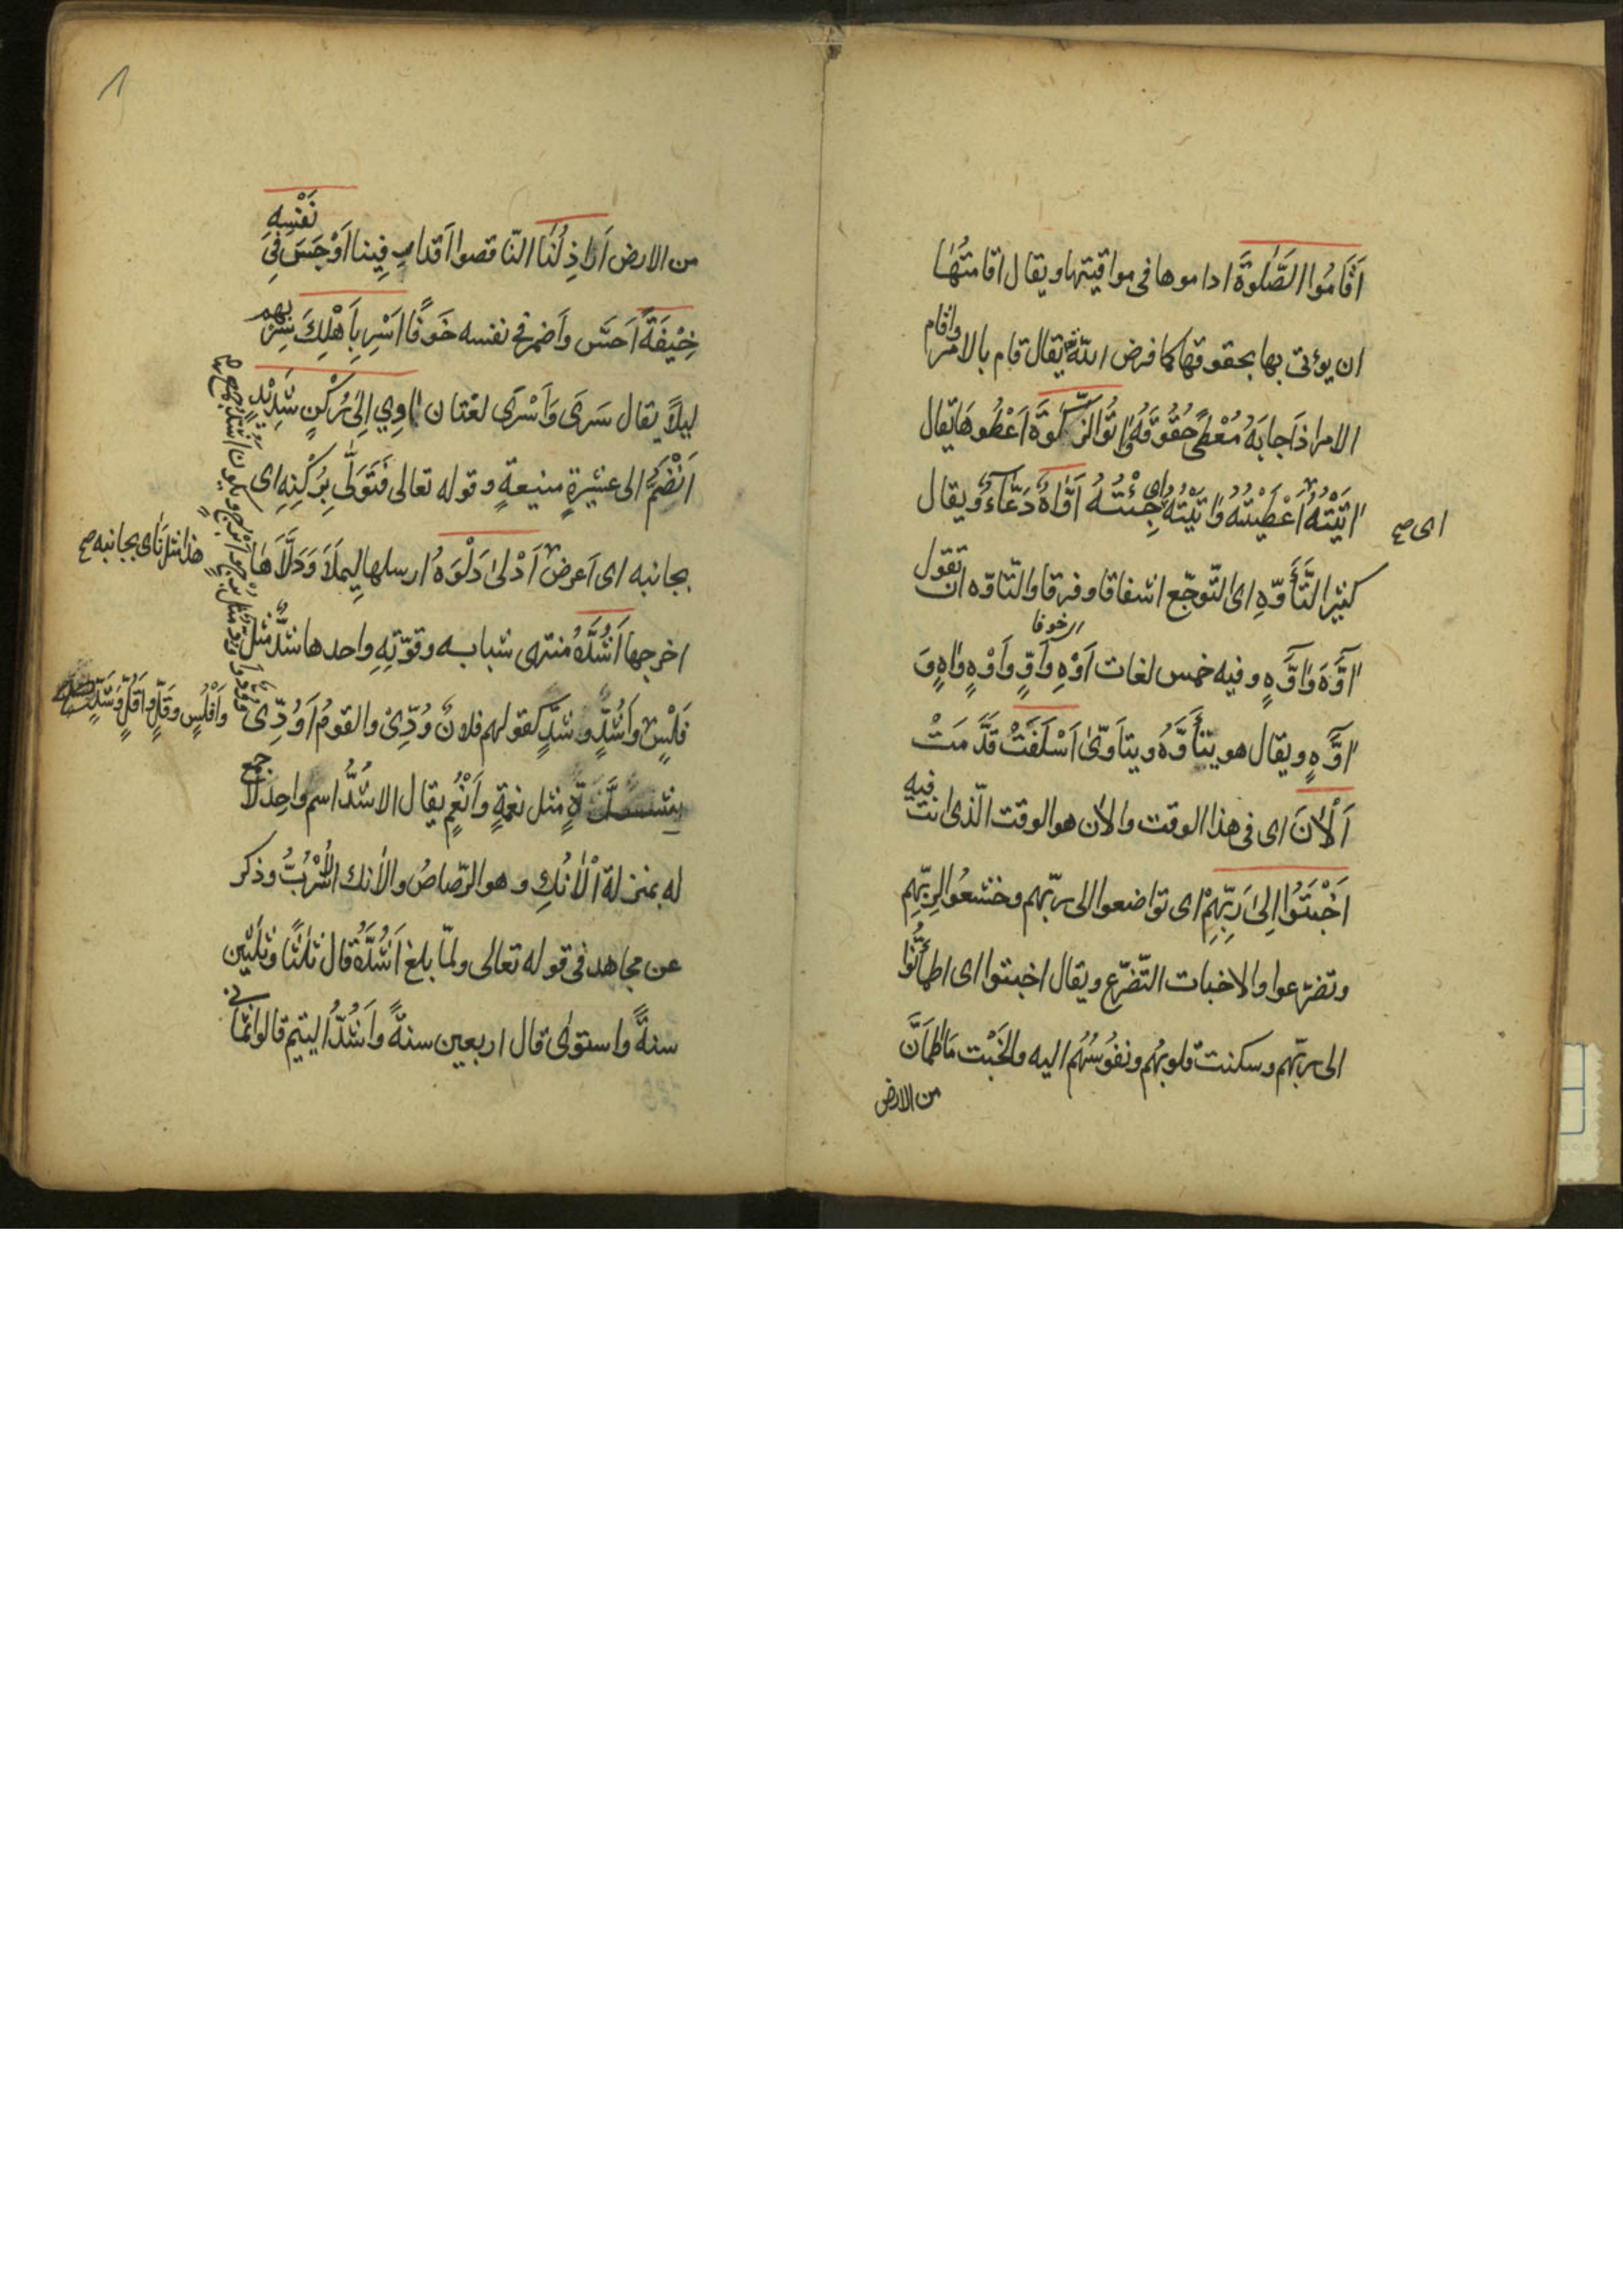 اَقَامُوا الصَّلٰوةَ اداموها فى مواقيتها ويقال اقامتُهٰا
ان يؤتى بها بحقوقها كما فرض اللّٰه يقال قام بالامر واقام
الامر اذا جابَهُ مُعْطًى حُقُوقَهُ اٰتُوا الزَّكٰوةَ اَعْطُوهَا يقال
اٰتَيْتُهُ اَعْطَيْتُهُ وَاَتَيْتُهُ اى جِئْتُهُ اَوَّاهٌ دَعَّاءٌ ويقال
اى صح
كثير التَّأَوّهِ اى التّوجّع اشفاقا وفرقا والتّاوّه ان تقول
اى خوفا
اَوَّهَ وَاَوَّهٍ وفيه خمس لغات اَوْهِ وَاَوٍّ وَاَوْهٍ وَاٰهٍ وَ
اٰوَّهٍ ويقال هو يتأَوَّهُ ويتاَوّىٰ اَسْلَفَتْ قَدَّمَتْ
اَلْاٰنَ اى فى هذا الوقت والاٰن هو الوقت الّذى انت فيه
اَخْبَتُوا اِلىٰ رَبِّهِمْ اى تواضعوا الى ربّهم وخشعُوا لِرَبِّهِم
وتضرّعوا والاخبات التّضرّع ويقال اخبتوا اى اطمأنُّوا
الى ربّهم وسكنت قلوبهُم ونفُوسُهُم اليه والخَبْت مَا اطمَاَنَّ
من الارض
من الارض اَرَاذِلُنَا النّاقصوا اَقدارٍ فِينا اَوْجَسَ فِى نَفْسِهِ
خِيْفَةً اَحسَّ واَضمر فى نفسه خَوفًا اَسْرِ بِاَهْلِكَ سِرْ بهم
ليلًا يقال سَرىٰ وَاَسْرىٰ لغتان اٰوِي اِلىٰ رُكْنٍ شَدِيْدٍ
اَنْضَمُّ الى عشيرةٍ منيعةٍ وقوله تعالى فَتَوَلّٰى بِرُكْنِهِ اى
بجانبه اى اَعرض اَدْلىٰ دَلْوَهُ ارسلها لِيملَاَ وَدَلَّاَهَا
هذا مثل نَاٰى بجانبه صح
اخرجها اَشُدَّهُ منتهى شبابه وقوّتِهِ واحدها شَدٌّ مثل
فَلْسٍ وَاَشُدٍّ وشَدٍّ كقولهم فلانٌ وُدِّىْ والقومُ اَوُدِّى
وَاَفْلُسٍ وقَلٍّ واَقُلٍّ وشَدٍّ
شِدَّةٍ مثل نعمةٍ وَاَنْعُمٍ يقال الاشُدُّ اسم واحِدٌ لا جمع
له بمنزلة اْلاٰنُكِ وهو الرّصاصُ والاٰنك الاُسْرُبُّ وذكر
عن مجاهد فى قوله تعالى ولمّا بلغ اَشُدَّهُ قال ثلٰثًا وثلٰثين
سنةً واستوىٰ قال اربعين سنةً واَشُدُّ اليتيم قالوا ثمانى